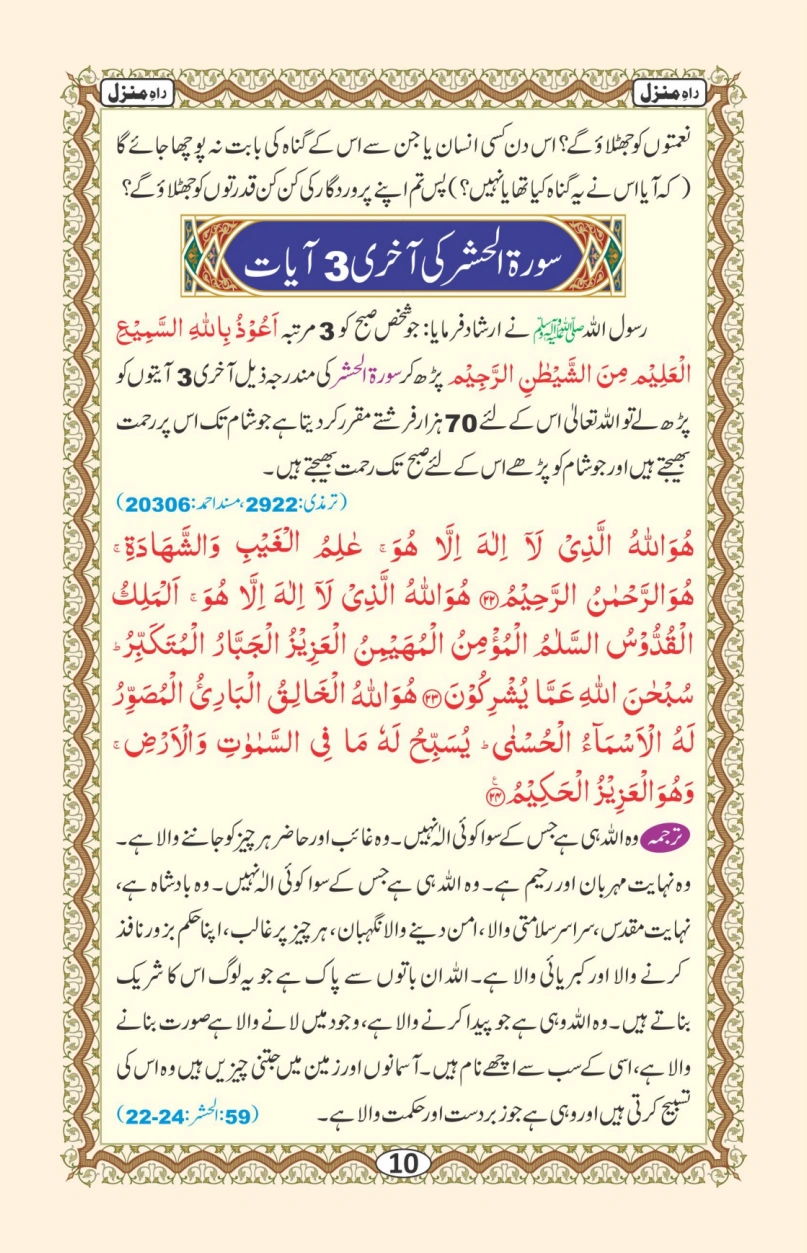 راہِ منزل
راہِ منزل
نعمتوں کو جھٹلاؤ گے؟ اس دن کسی انسان یا جن سے اس کے گناہ کی بابت نہ پوچھا جائے گا
( کہ آیا اس نے یہ گناہ کیا تھا یا نہیں؟) پس تم اپنے پروردگار کی کن کن قدرتوں کو جھٹلاؤ گے؟
سورۃ الحشر کی آخری 3 آیات
رسول اللہ ﷺ نے ارشاد فرمایا: جو شخص صبح کو 3 مرتبہ اَعُوْذُ بِاللهِ السَّمِيْعِ
الْعَلِيْمِ مِنَ الشَّيْطٰنِ الرَّجِيْمِ پڑھ کر سورۃ الحشر کی مندرجہ ذیل آخری 3 آیتوں کو
پڑھ لے تو اللہ تعالیٰ اس کے لئے 70 ہزار فرشتے مقرر کر دیتا ہے جو شام تک اس پر رحمت
بھیجتے ہیں اور جو شام کو پڑھے اس کے لئے صبح تک رحمت بھیجتے ہیں۔
(ترمذی:2922، مسند احمد:20306)
هُوَ اللهُ الَّذِيْ لَآ اِلٰهَ اِلَّا هُوَ ۚ عٰلِمُ الْغَيْبِ وَالشَّهَادَةِ ۚ
هُوَ الرَّحْمٰنُ الرَّحِيْمُ ﴿۲۲﴾ هُوَ اللهُ الَّذِيْ لَآ اِلٰهَ اِلَّا هُوَ ۚ اَلْمَلِكُ
الْقُدُّوْسُ السَّلٰمُ الْمُؤْمِنُ الْمُهَيْمِنُ الْعَزِيْزُ الْجَبَّارُ الْمُتَكَبِّرُ ؕ
سُبْحٰنَ اللهِ عَمَّا يُشْرِكُوْنَ ﴿۲۳﴾ هُوَ اللهُ الْخَالِقُ الْبَارِئُ الْمُصَوِّرُ
لَهُ الْاَسْمَآءُ الْحُسْنٰى ؕ يُسَبِّحُ لَهٗ مَا فِى السَّمٰوٰتِ وَالْاَرْضِ ۚ
وَهُوَ الْعَزِيْزُ الْحَكِيْمُ ﴿۲۴﴾ ع
ترجمہ وہ اللہ ہی ہے جس کے سوا کوئی الٰہ نہیں۔ وہ غائب اور حاضر ہر چیز کو جاننے والا ہے۔
وہ نہایت مہربان اور رحیم ہے۔ وہ اللہ ہی ہے جس کے سوا کوئی الٰہ نہیں۔ وہ بادشاہ ہے،
نہایت مقدس، سراسر سلامتی والا، امن دینے والا نگہبان، ہر چیز پر غالب، اپنا حکم بزور نافذ
کرنے والا اور کبریائی والا ہے۔ اللہ ان باتوں سے پاک ہے جو یہ لوگ اس کا شریک
بناتے ہیں۔ وہ اللہ وہی ہے جو پیدا کرنے والا ہے، وجود میں لانے والا ہے صورت بنانے
والا ہے، اسی کے سب سے اچھے نام ہیں۔ آسمانوں اور زمین میں جتنی چیزیں ہیں وہ اس کی
تسبیح کرتی ہیں اور وہی ہے جو زبردست اور حکمت والا ہے۔ (59:الحشر:24-22)
10